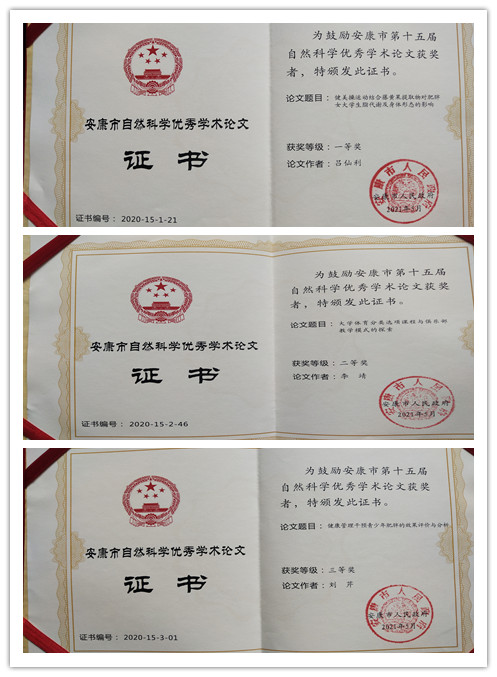 安康市自然科学优秀学术论文
证书
证书编号： 2020-15-1-21
为鼓励安康市第十五届
自然科学优秀学术论文获奖
者，特颁发此证书。
论文题目： 健美操运动结合藤黄果提取物对肥胖
女大学生脂代谢及身体形态的影响
获奖等级：一等奖
论文作者：吕仙利
安康市人民政府
2021年5月
安康市自然科学优秀学术论文
证书
证书编号： 2020-15-2-46
为鼓励安康市第十五届
自然科学优秀学术论文获奖
者，特颁发此证书。
论文题目： 大学体育分类选项课程与俱乐部
教学模式的探索
获奖等级：二等奖
论文作者：李 靖
安康市人民政府
2021年5月
安康市自然科学优秀学术论文
证书
证书编号： 2020-15-3-01
为鼓励安康市第十五届
自然科学优秀学术论文获奖
者，特颁发此证书。
论文题目：健康管理干预青少年肥胖的效果评价与分析
获奖等级：三等奖
论文作者：刘 芹
安康市人民政府
2021年5月